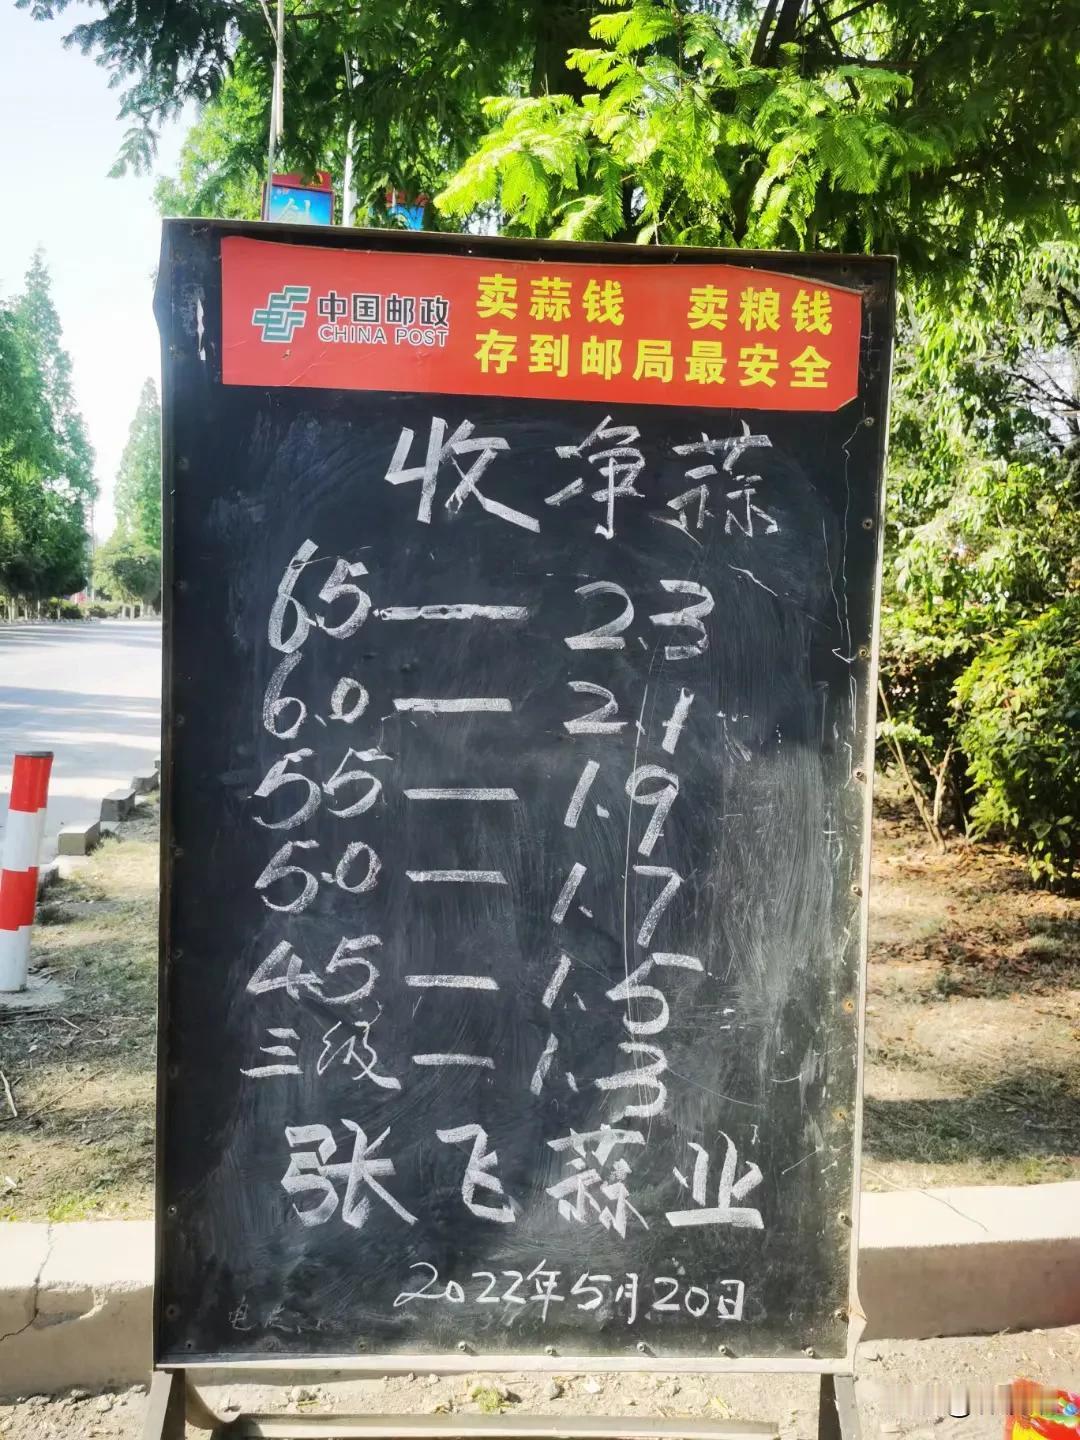 中国邮政
CHINA POST
卖蒜钱 卖粮钱
存到邮局最安全
收净蒜
6.5 — 2.3
6.0 — 2.1
5.5 — 1.9
5.0 — 1.7
4.5 — 1.5
三级 — 1.3
张飞蒜业
2022年5月20日